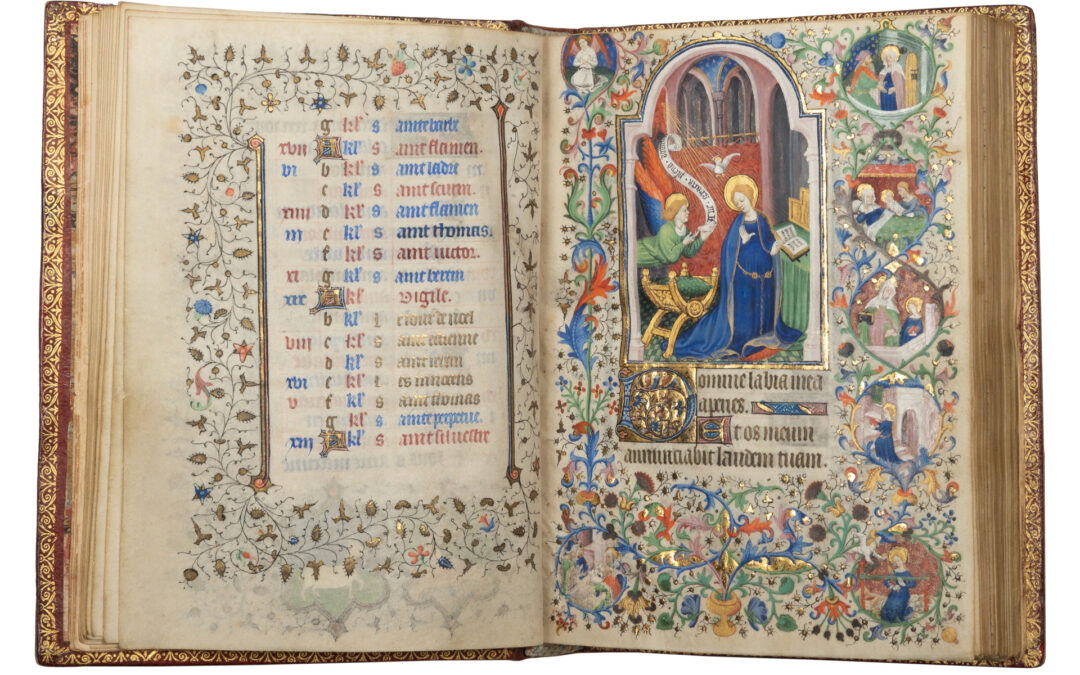 g kl s ainte barbe
xvii A kl s aint flamen.
vi b kl s aint ladre
e kl s aint seurin.
xiiii d kl s aint flamen
iii e kl s aint thomas.
f kl s aint victor.
xi g kl s aint
xix A kl Vigile.
b kl l e iour de noel
viii c kl s aint estienne
d kl s aint iehan
xvi e kl l es innocens
v f kl s aint thomas
g kl s ainte perpetue.
xiii A kl s aint silvestre
Ave gracia plena
Domine labia mea
aperies.
Et os meum
annunciabit laudem tuam.